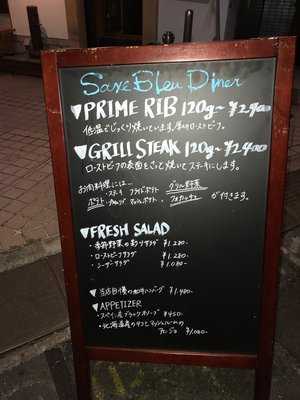 Saxe Bleu Diner
▼PRIME RIB 120g〜 ¥2,900
低温でじっくり焼いています。厚切ローストビーフ。
▼GRILL STEAK 120g〜 ¥2,400
ローストビーフの表面をこって焼いてステーキにします。
お肉料理には…
グリル野菜
ポテト
フォカッチャ
が付きます。
▼FRESH SALAD
・季節野菜の彩りサラダ ¥1,280.
・ローストビーフサラダ ¥1,280.
・シーザーサラダ ¥1,080.
▼当店自慢の ¥1,480.
▼APPETIZER
・スペイン産ブラックオリーブ ¥450.
・北海道産のタコとマッシュルームの
アヒージョ ¥1,080.